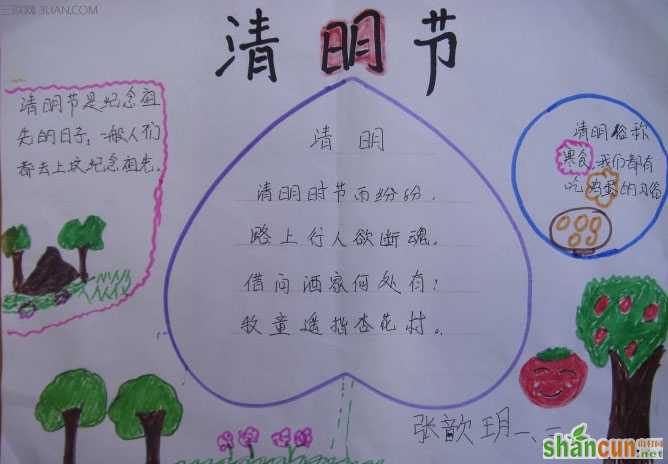 三联网 3LIAN.COM
清明节
清明节是纪念祖
先的日子，一般人们
都去上坟纪念祖先。
清明
清明时节雨纷纷，
路上行人欲断魂。
借问酒家何处有？
牧童遥指杏花村。
清明俗称
寒食，我们都有
吃鸡蛋的习俗
张歆玥
shancun
.net